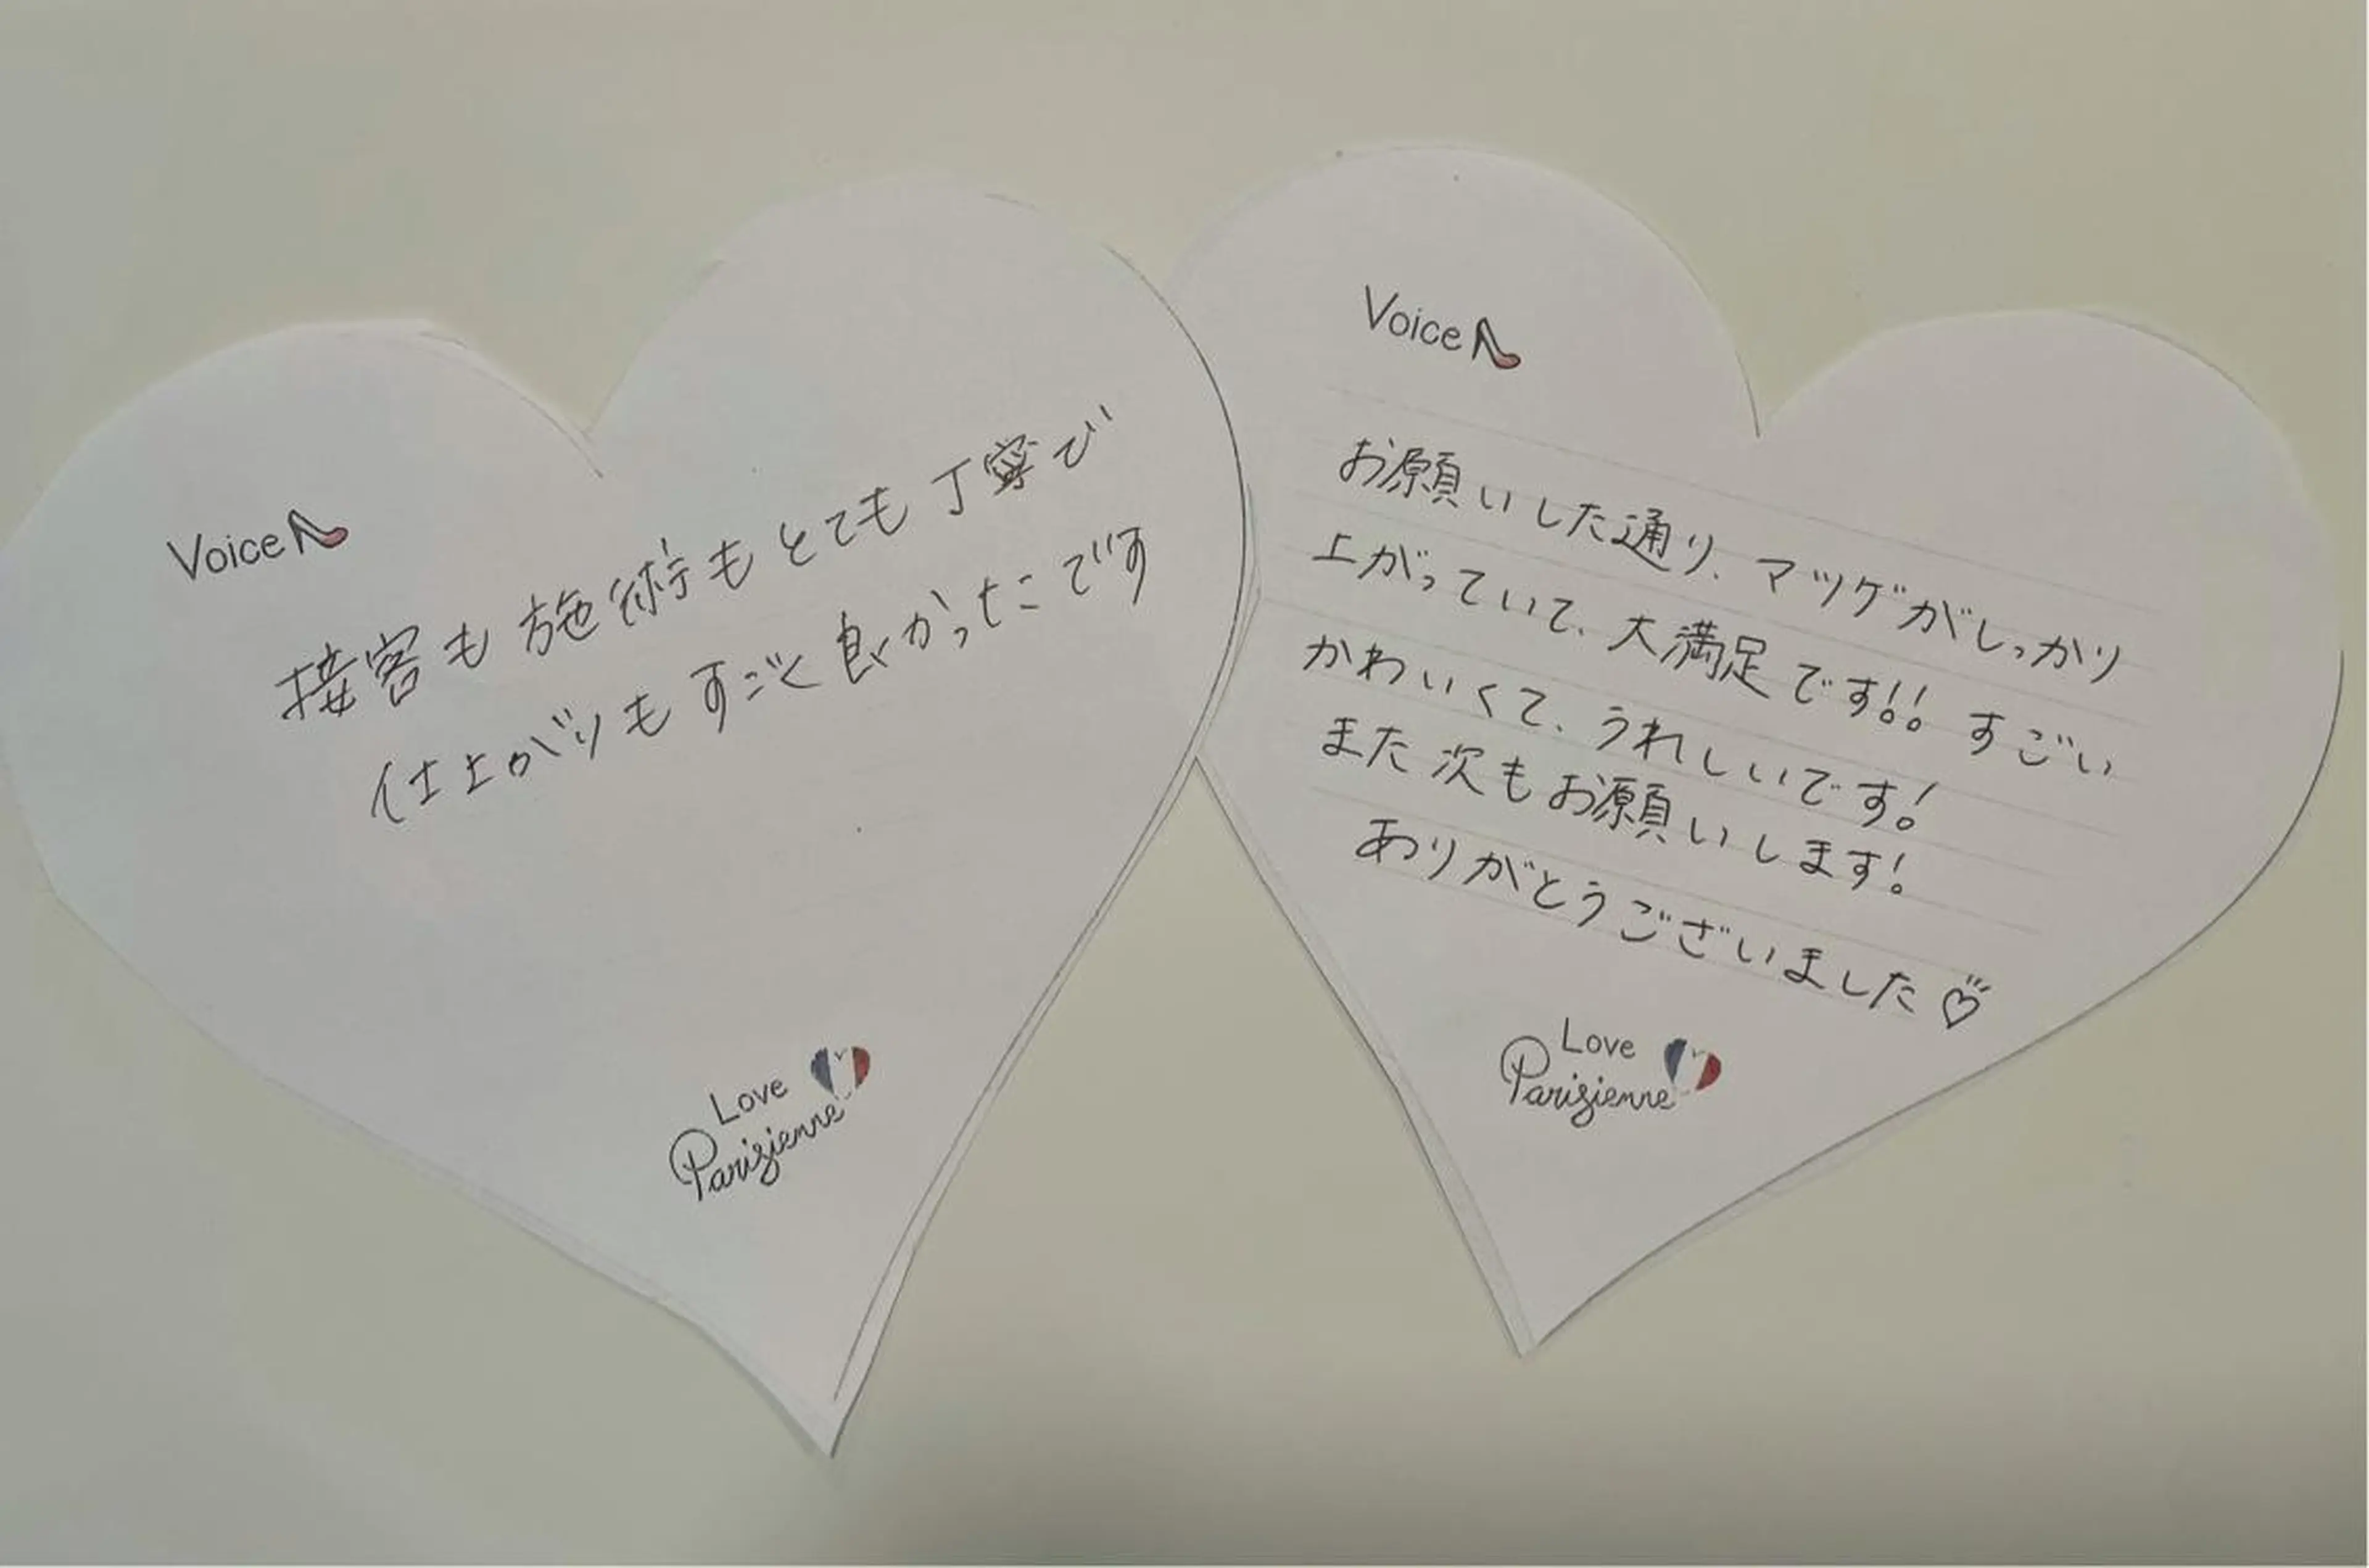 Voice
接客も施術もとても丁寧で
仕上がりもすごく良かったです
Love
Parisienne
Voice
お願いした通り、マツゲがしっかり
上がっていて、大満足です!! すごい
かわいくて、うれしいです!
また次もお願いします!
ありがとうございました♡
Love
Parisienne